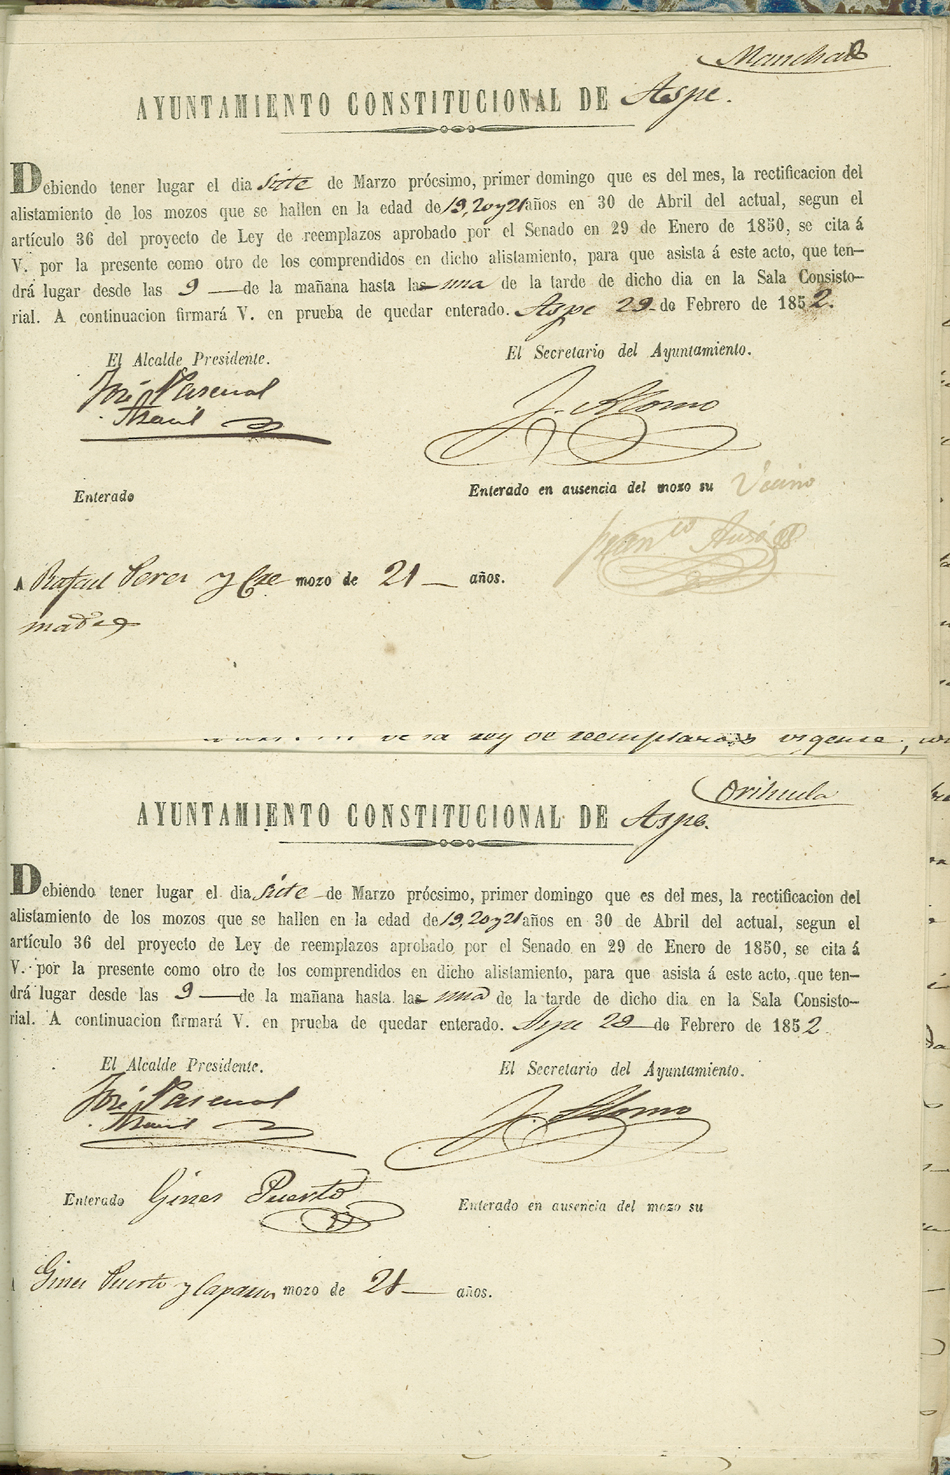 AYUNTAMIENTO CONSTITUCIONAL DE Aspe.
Debiendo tener lugar el dia siete de Marzo prócsimo, primer domingo que es del mes, la rectificacion del
alistamiento de los mozos que se hallen en la edad de 19, 20 y 21 años en 30 de Abril del actual, segun el
artículo 36 del proyecto de Ley de reemplazos aprobado por el Senado en 29 de Enero de 1850, se cita á
V. por la presente como otro de los comprendidos en dicho alistamiento, para que asista á este acto, que ten-
drá lugar desde las 9 de la mañana hasta las una de la tarde de dicho dia en la Sala Consisto-
rial. A continuacion firmará V. en prueba de quedar enterado. Aspe 29 de Febrero de 1852.
El Alcalde Presidente.
El Secretario del Ayuntamiento.
José Pascual
J. Alonso
Enterado
Enterado en ausencia del mozo su Vecino
A Rafael Perez y mozo de 21 años.
Orihuela
AYUNTAMIENTO CONSTITUCIONAL DE Aspe.
Debiendo tener lugar el dia siete de Marzo prócsimo, primer domingo que es del mes, la rectificacion del
alistamiento de los mozos que se hallen en la edad de 19, 20 y 21 años en 30 de Abril del actual, segun el
artículo 36 del proyecto de Ley de reemplazos aprobado por el Senado en 29 de Enero de 1850, se cita á
V. por la presente como otro de los comprendidos en dicho alistamiento, para que asista á este acto, que ten-
drá lugar desde las 9 de la mañana hasta las una de la tarde de dicho dia en la Sala Consisto-
rial. A continuacion firmará V. en prueba de quedar enterado. Aspe 29 de Febrero de 1852.
El Alcalde Presidente.
El Secretario del Ayuntamiento.
José Pascual
J. Alonso
Enterado Gines Puerto
Enterado en ausencia del mozo su
Gines Puerto y mozo de 21 años.